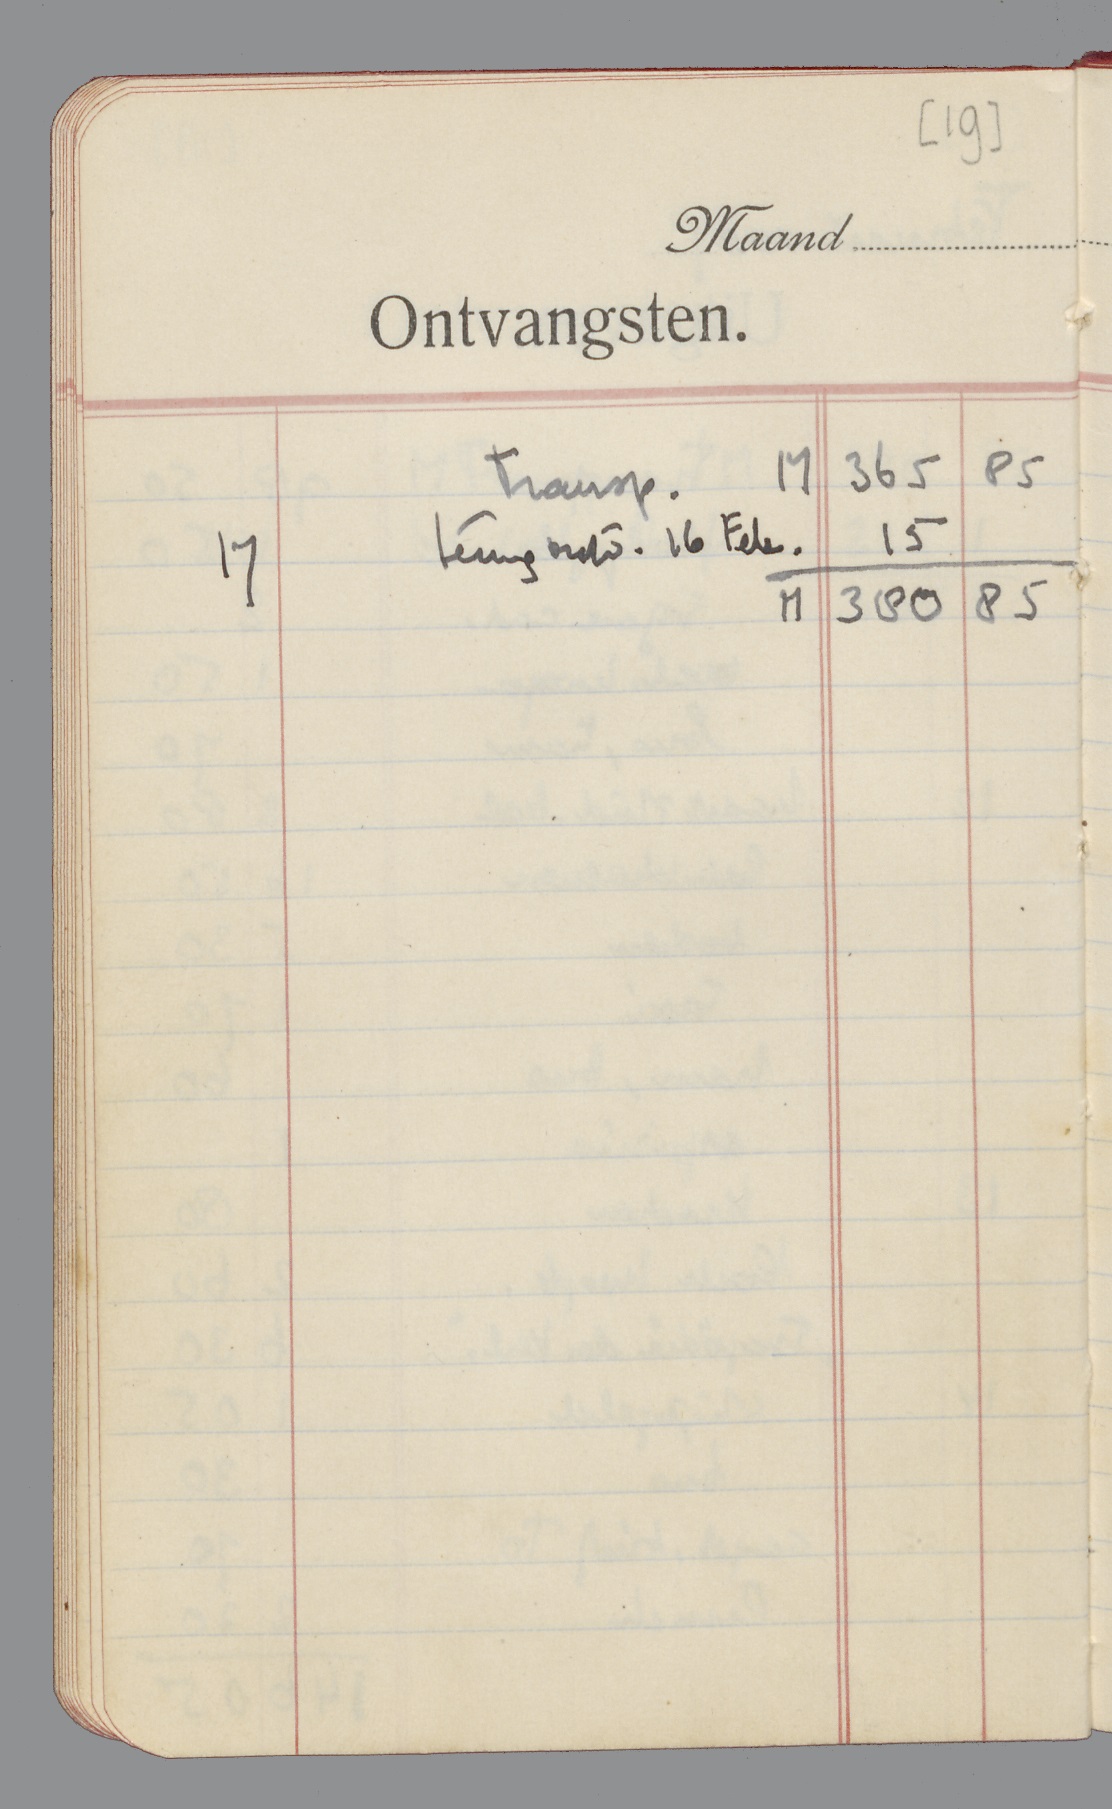 [19]
Maand
Ontvangsten.
Transp. M 365 85
17 16 Feb. 15
M 380 85